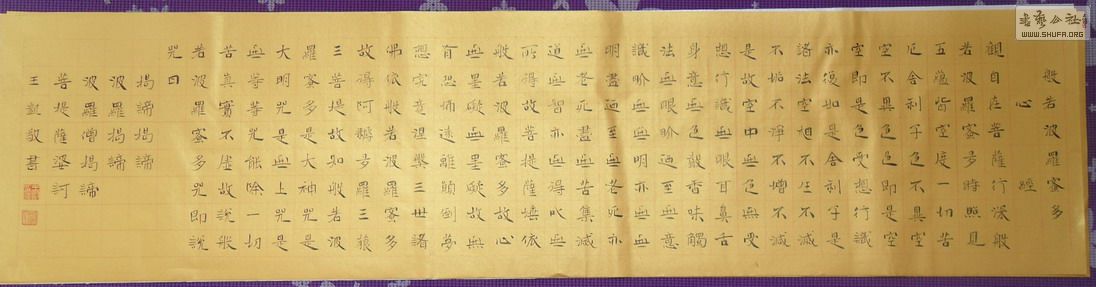 般若波羅蜜多
心經
觀自在菩薩行深般
若波羅蜜多時照見
五蘊皆空度一切苦
厄舍利子色不異空
空不異色色即是空
空即是色受想行識
亦復如是舍利子是
諸法空相不生不滅
不垢不淨不增不減
是故空中色無受
想行識無眼耳鼻舌
身意無色聲香味觸
法無眼界乃至無意
識界無無明亦無無
明盡乃至無老死亦
無老死盡無苦集滅
道無智亦無得以無
所得故菩提薩埵依
般若波羅蜜多故心
無罣礙無罣礙故無
有恐怖遠離顛倒夢
想究竟涅槃三世諸
佛依般若波羅蜜多
故得阿耨多羅三藐
三菩提故知般若波
羅蜜多是大神咒是
大明咒是無上咒是
無等等咒能除一切
苦真實不虛故說般
若波羅蜜多咒即說
咒曰
揭諦揭諦
波羅揭諦
波羅僧揭諦
菩提薩婆訶
王凱敬書
书艺公社
WWW.SHUFA.ORG